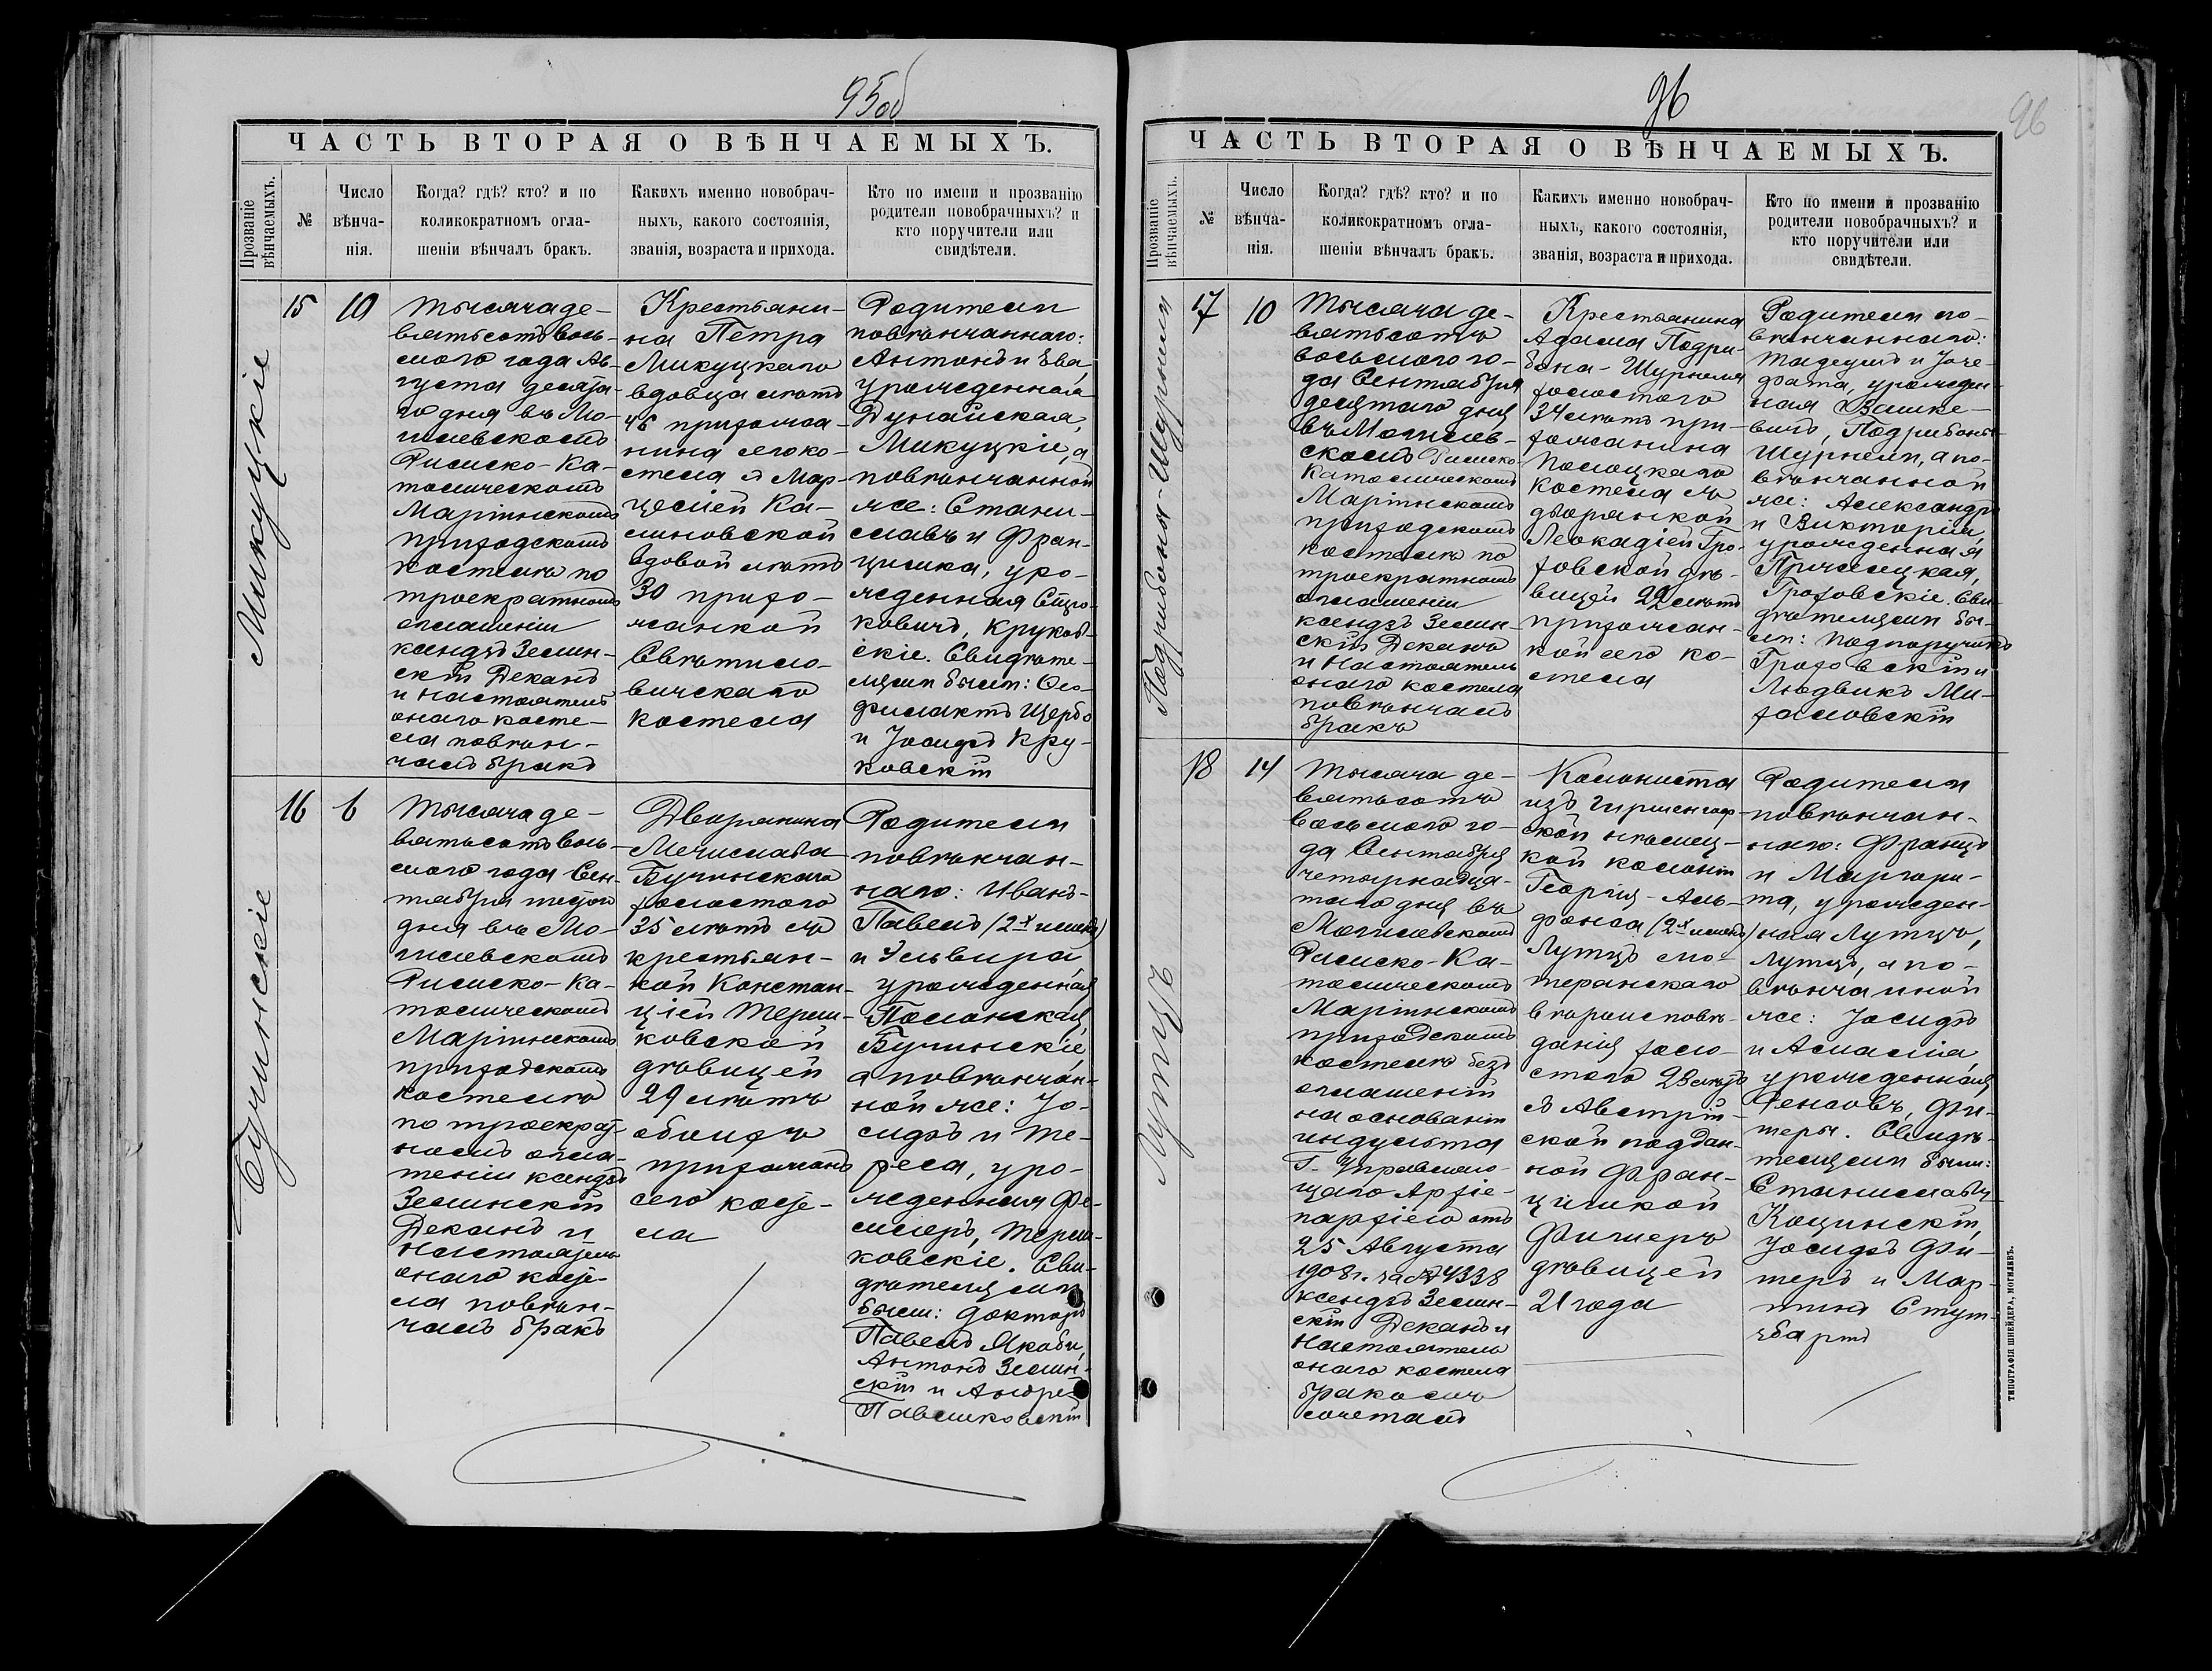 95об
ЧАСТЬ ВТОРАЯ О ВѢНЧАЕМЫХЪ.
Прозваніе
вѣнчаемыхъ.
№
Число
вѣнча-
нія.
Когда? гдѣ? кто? и по
коликократномъ огла-
шеніи вѣнчалъ бракъ.
Какихъ именно новобрач-
ныхъ, какого состоянія,
званія, возраста и прихода.
Кто по имени и прозванію
родители новобрачныхъ? и
кто поручители или
свидѣтели.
Микуцкіе
15
10
Тысяча де-
вятьсотъ вось-
мого года Ав-
густа десята-
го дня въ Мо-
гилевскомъ
Римско-Ка-
толическомъ
Маріинскомъ
приходскомъ
костелѣ по
троекратномъ
оглашеніи
ксендзъ Зелин-
скій Деканъ
и Настоятель
онаго косте-
ла повѣн-
чалъ бракъ
Крестьяни-
на Петра
Микуцкаго
вдовца лѣтъ
46 прихожа-
нина сего ко-
стела съ Мар-
целіей Ка-
линовской
вдовой лѣтъ
30 прихо-
жанкой
Свѣтило-
вичскаго
костела
Родители
повѣнчаннаго:
Антонъ и Ева,
урожденная
Дунайская,
Микуцкіе, а
повѣнчанной
же: Стани-
славъ и Фран-
цишка, уро-
жденная
ковичъ, Круков-
скіе. Свидѣте-
лями были: Фео-
филактъ Щербо
и Іосифъ Кру-
ковскій
Бучинскіе
16
6
Тысяча де-
вятьсотъ вось-
мого года Сен-
тября шестого
дня въ Мо-
гилевскомъ
Римско-Ка-
толическомъ
Маріинскомъ
приходскомъ
костелѣ
по троекрат-
номъ огла-
шеніи ксендзъ
Зелинскій
Деканъ и
Настоятель
онаго косте-
ла повѣн-
чалъ бракъ
Дворянина
Мечислава
Бучинскаго
холостого
35 лѣтъ съ
крестьян-
кой Констан-
ціей Терли-
ковской
дѣвицей
29 лѣтъ
обоихъ
прихожанъ
сего косте-
ла
Родители
повѣнчан-
наго: Иванъ-
Павелъ (2хъ именъ)
и Эльвира,
урожденная
Полонская,
Бучинскіе,
а повѣнчан-
ной же: Іо-
сифъ и Те-
реса, уро-
жденная
Терли-
ковскіе. Сви-
дѣтелями
были: докторъ
Павелъ Якоби,
Антонъ Зелин-
скій и Андрей
Павликовскій
96
96
ЧАСТЬ ВТОРАЯ О ВѢНЧАЕМЫХЪ.
Прозваніе
вѣнчаемыхъ.
№
Число
вѣнча-
нія.
Когда? гдѣ? кто? и по
коликократномъ огла-
шеніи вѣнчалъ бракъ.
Какихъ именно новобрач-
ныхъ, какого состоянія,
званія, возраста и прихода.
Кто по имени и прозванію
родители новобрачныхъ? и
кто поручители или
свидѣтели.
Подрибоны-Шурпели
17
10
Тысяча де-
вятьсотъ
восьмого го-
да Сентября
десятаго дня
въ Могилев-
скомъ Римско-
Католическомъ
Маріинскомъ
приходскомъ
костелѣ по
троекратномъ
оглашеніи
ксендзъ Зелин-
скій Деканъ
и Настоятель
онаго костела
повѣнчалъ
бракъ
Крестьянина
Адама Подри-
бона-Шурпеля
холостого
34 лѣтъ при-
хожанина
Полоцкаго
костела съ
дворянкой
Леокадіей Гро-
ховской дѣ-
вицей 22 лѣтъ
прихожан-
кой сего ко-
стела
Родители по-
вѣнчаннаго:
Тадеушъ и Іозе-
фата, урожден-
ная Вашке-
вичъ, Подрибоны-
Шурпели, а по-
вѣнчанной
же: Александръ
и Викторія,
урожденная
Гроховскіе. Сви-
дѣтелями бы-
ли: Подпоручикъ
Гроховскій и
Людвикъ Ми-
халовскій
Лутцъ
18
14
Тысяча де-
вятьсотъ
восьмого го-
да Сентября
четырнадца-
таго дня въ
Могилевскомъ
Римско-Ка-
толическомъ
Маріинскомъ
приходскомъ
костелѣ безъ
оглашеній
на основаніи
индульта
Г. Управляю-
щаго Архіе-
пархіею отъ
25 Августа
1908 г. за № 4338
ксендзъ Зелин-
скій Деканъ и
Настоятель
онаго костела
бракомъ
сочеталъ
Колониста
изъ Гиршенгоф-
ской нѣмец-
кой колоніи
Георгія-Аль-
фонса (2хъ именъ)
Лутцъ лю-
теранскаго
вѣроисповѣ-
данія холо-
стого 28 лѣтъ
съ Австрій-
ской поддан-
ной Фран-
цишкой
Фишеръ
дѣвицей
21 года
Родители
повѣнчан-
наго: Францъ
и Маргари-
та, урожден-
ная Лутцъ,
Лутцъ, а по-
вѣнчанной
же: Іосифъ
и Амалія,
урожденная
Фи-
шеры. Свидѣ-
телями были:
Станиславъ
Коцинскій,
Іосифъ Фи-
шеръ и Мар-
тинъ
ТИПОГРАФІЯ ШНЕЙДЕРА, МОГИЛЕВЪ.